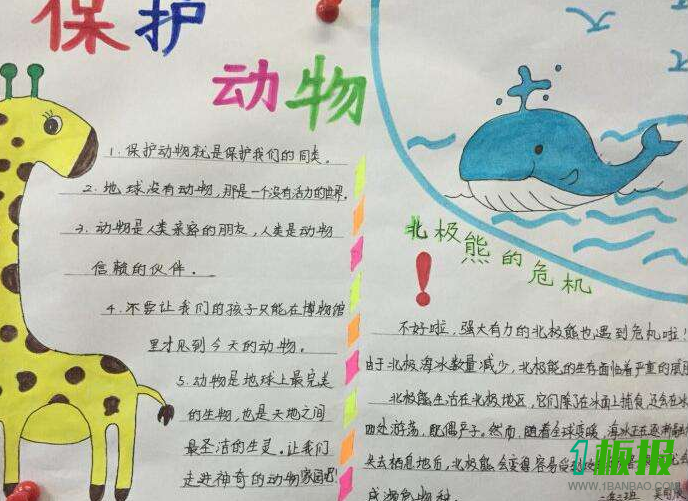 保护
动物
1. 保护动物就是保护我们的同类。
2. 地球没有动物，那是一个没有活力的世界。
3. 动物是人类亲密的朋友，人类是动物
信赖的伙伴。
4. 不要让我们的孩子只能在博物馆
里才见到今天的动物。
5. 动物是地球上最完美
的生物，也是天地之间
最圣洁的生灵。让我们
走进神奇的动物家园吧
北极熊的危机！
不好啦，强大有力的北极熊也遇到危机啦！
由于北极海冰数量减少，北极熊的生存面临着严重的威胁
北极熊生活在北极地区，它们除了在冰面上捕食，还会在冰
四处游荡，配偶产子。然而，随着全球变暖，海冰正在逐渐融
失去栖息地后，北极熊会变得容易受
成濒危物种。
1板报
WWW.1BANBAO.COM